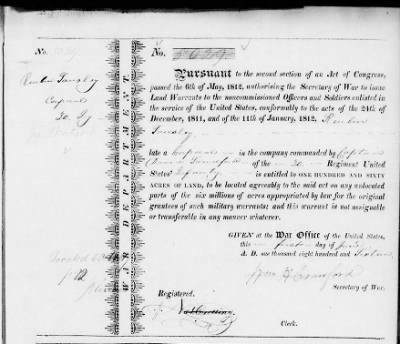 No.
Reuben
Corporal
20.
No. 5029
Pursuant to the second section of an Act of Congress,
passed the 6th of May, 1812, authorising the Secretary of War to issue
Land Warrants to the noncommissioned Officers and Soldiers enlisted in
the service of the United States, conformably to the acts of the 24th of
December, 1811, and of the 11th of January, 1812. Reuben
late a corporal in the company commanded by Captain
of the 20 Regiment United
States' Infantry is entitled to ONE HUNDRED AND SIXTY
ACRES OF LAND, to be located agreeably to the said act on any unlocated
parts of the six millions of acres appropriated by law for the original
grantees of such military warrants; and this warrant is not assignable
or transferable in any manner whatever.
GIVEN at the War Office of the United States,
this first day of
A. D. one thousand eight hundred and
Wm H Crawford
Secretary of War.
Registered.
Clerk.
WAR DEPARTMENT
Located